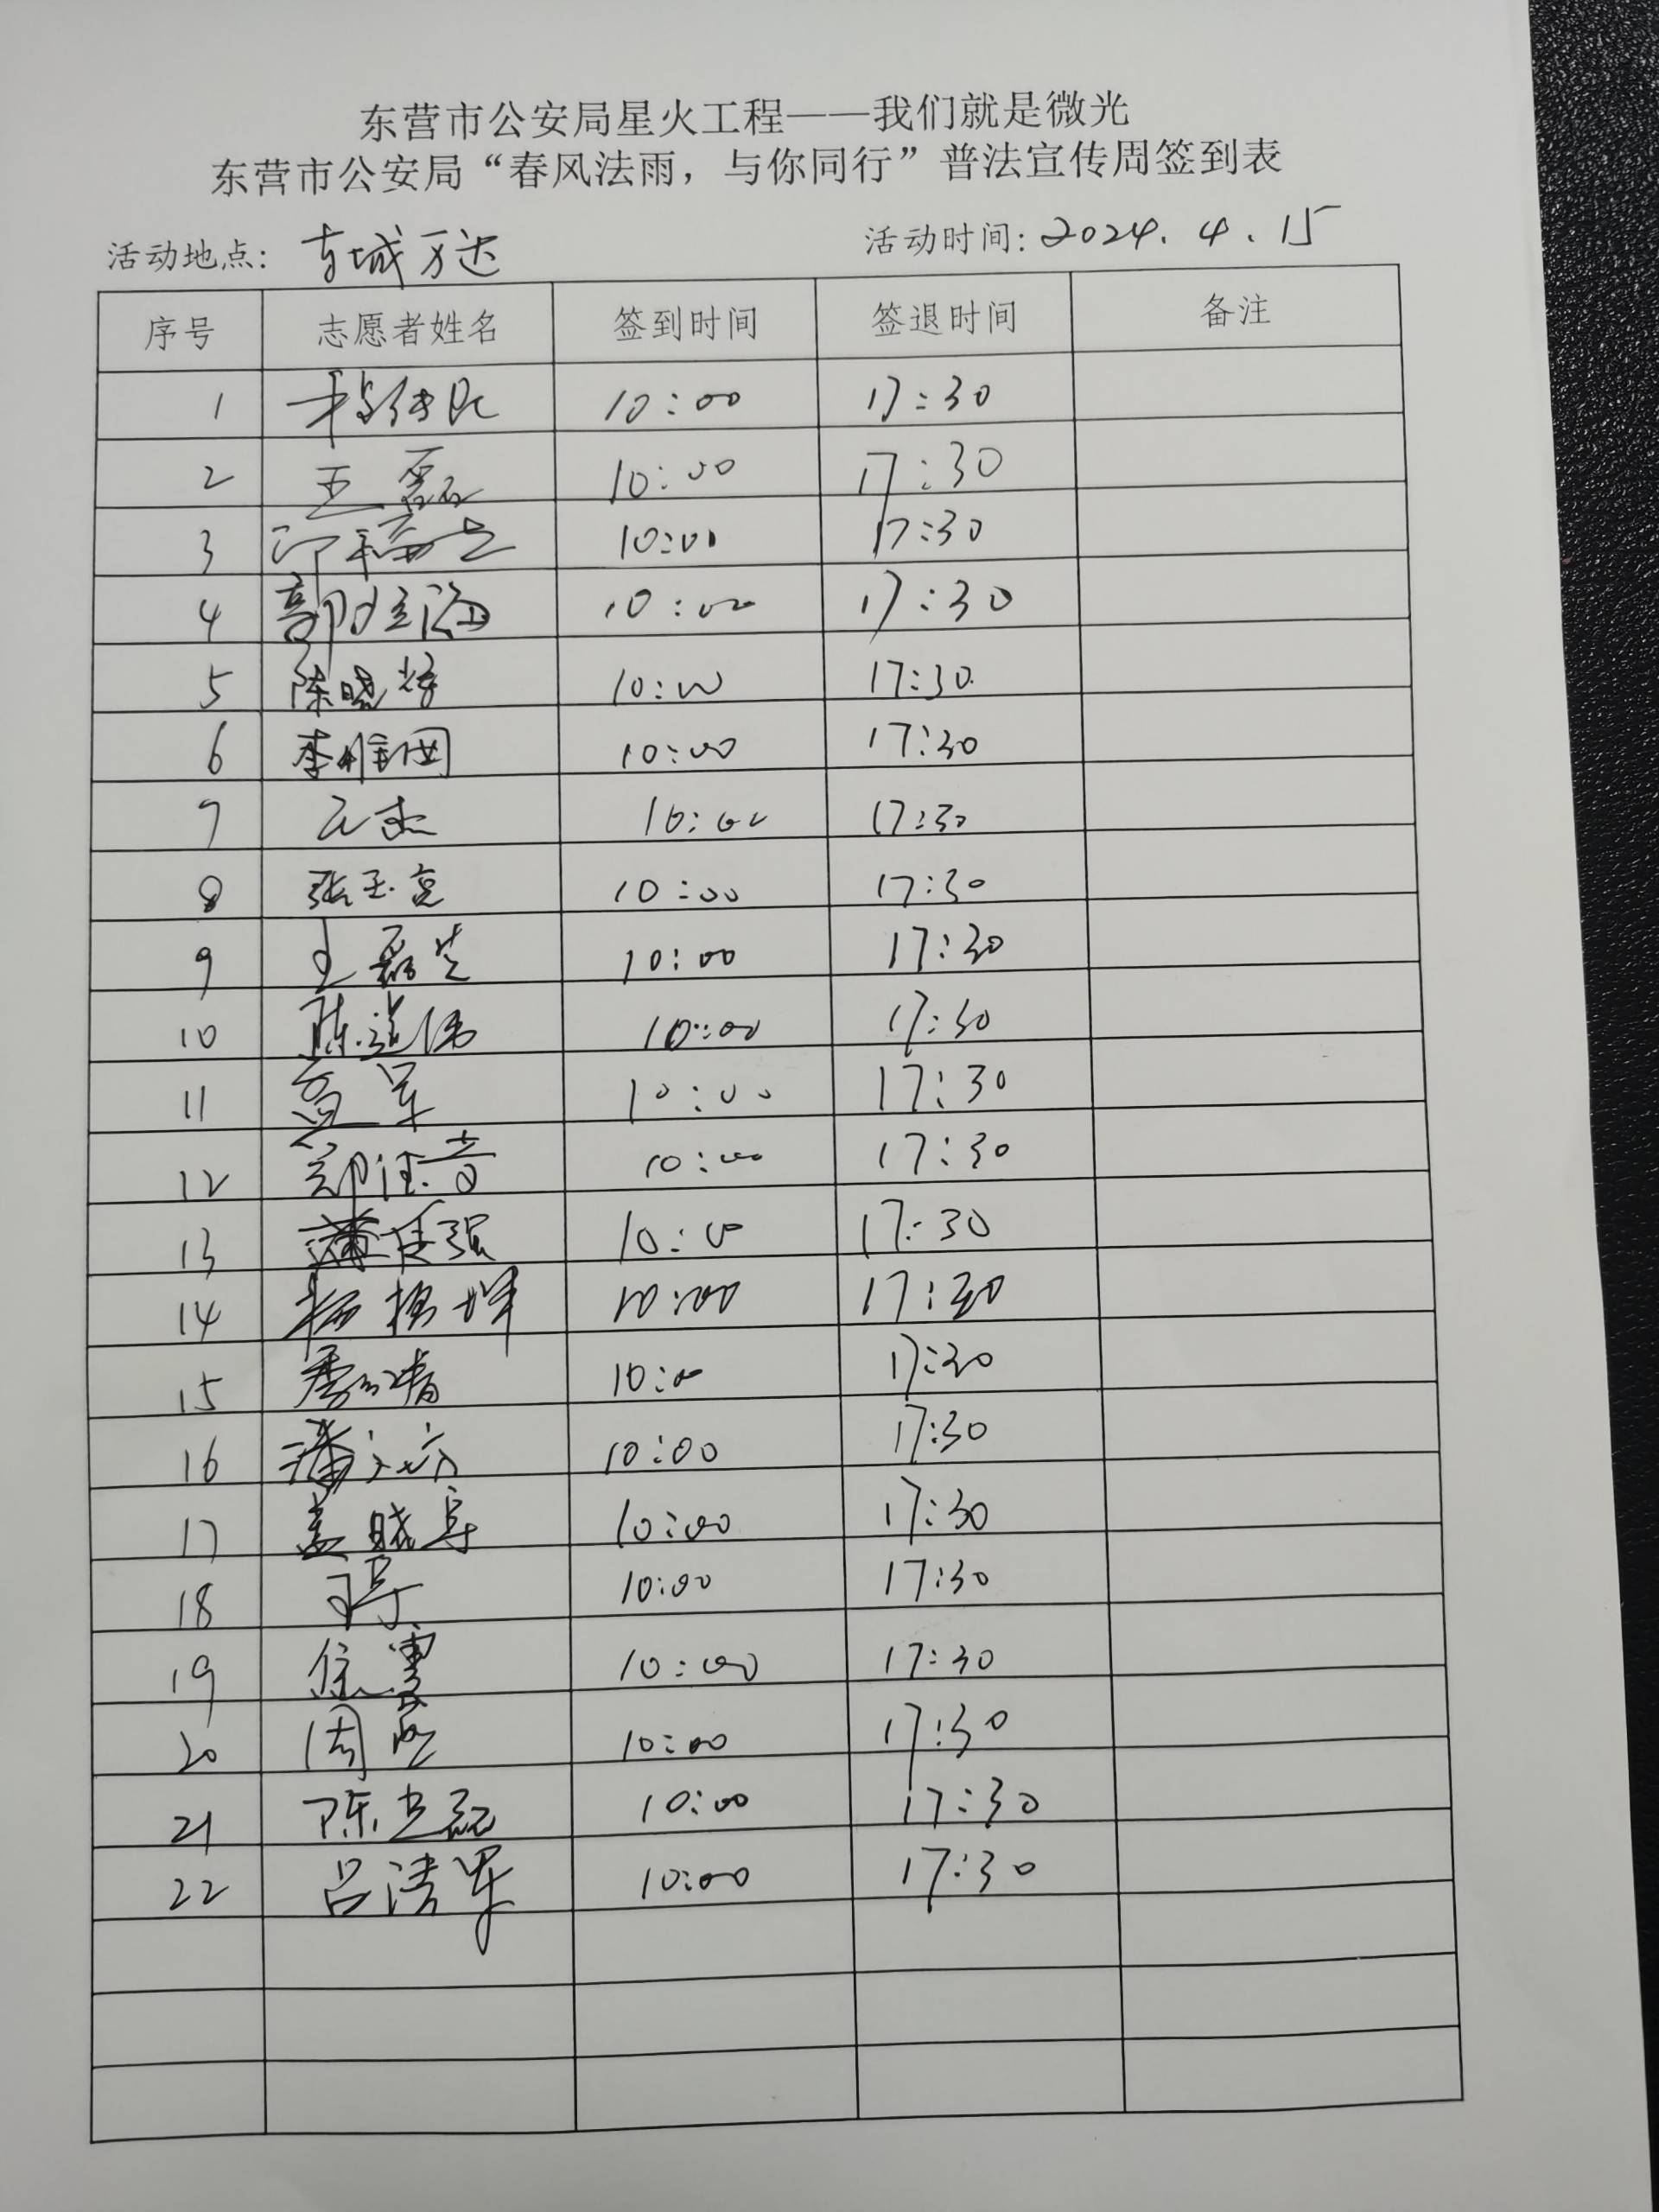 东营市公安局星火工程——我们就是微光
东营市公安局“春风法雨，与你同行”普法宣传周签到表
活动地点：东城万达 活动时间：2024.4.15
序号 志愿者姓名 签到时间 签退时间 备注
1 10:00 17:30
2 王磊 10:00 17:30
3 10:00 17:30
4 10:00 17:30
5 陈晓 10:00 17:30
6 李 国 10:00 17:30
7 10:00 17:30
8 张玉亮 10:00 17:30
9 王磊 10:00 17:30
10 陈道伟 10:00 17:30
11 10:00 17:30
12 郑 10:00 17:30
13 10:00 17:30
14 杨 10:00 17:30
15 10:00 17:30
16 潘 10:00 17:30
17 盖晓 10:00 17:30
18 10:00 17:30
19 10:00 17:30
20 周 10:00 17:30
21 陈 磊 10:00 17:30
22 吕 军 10:00 17:30